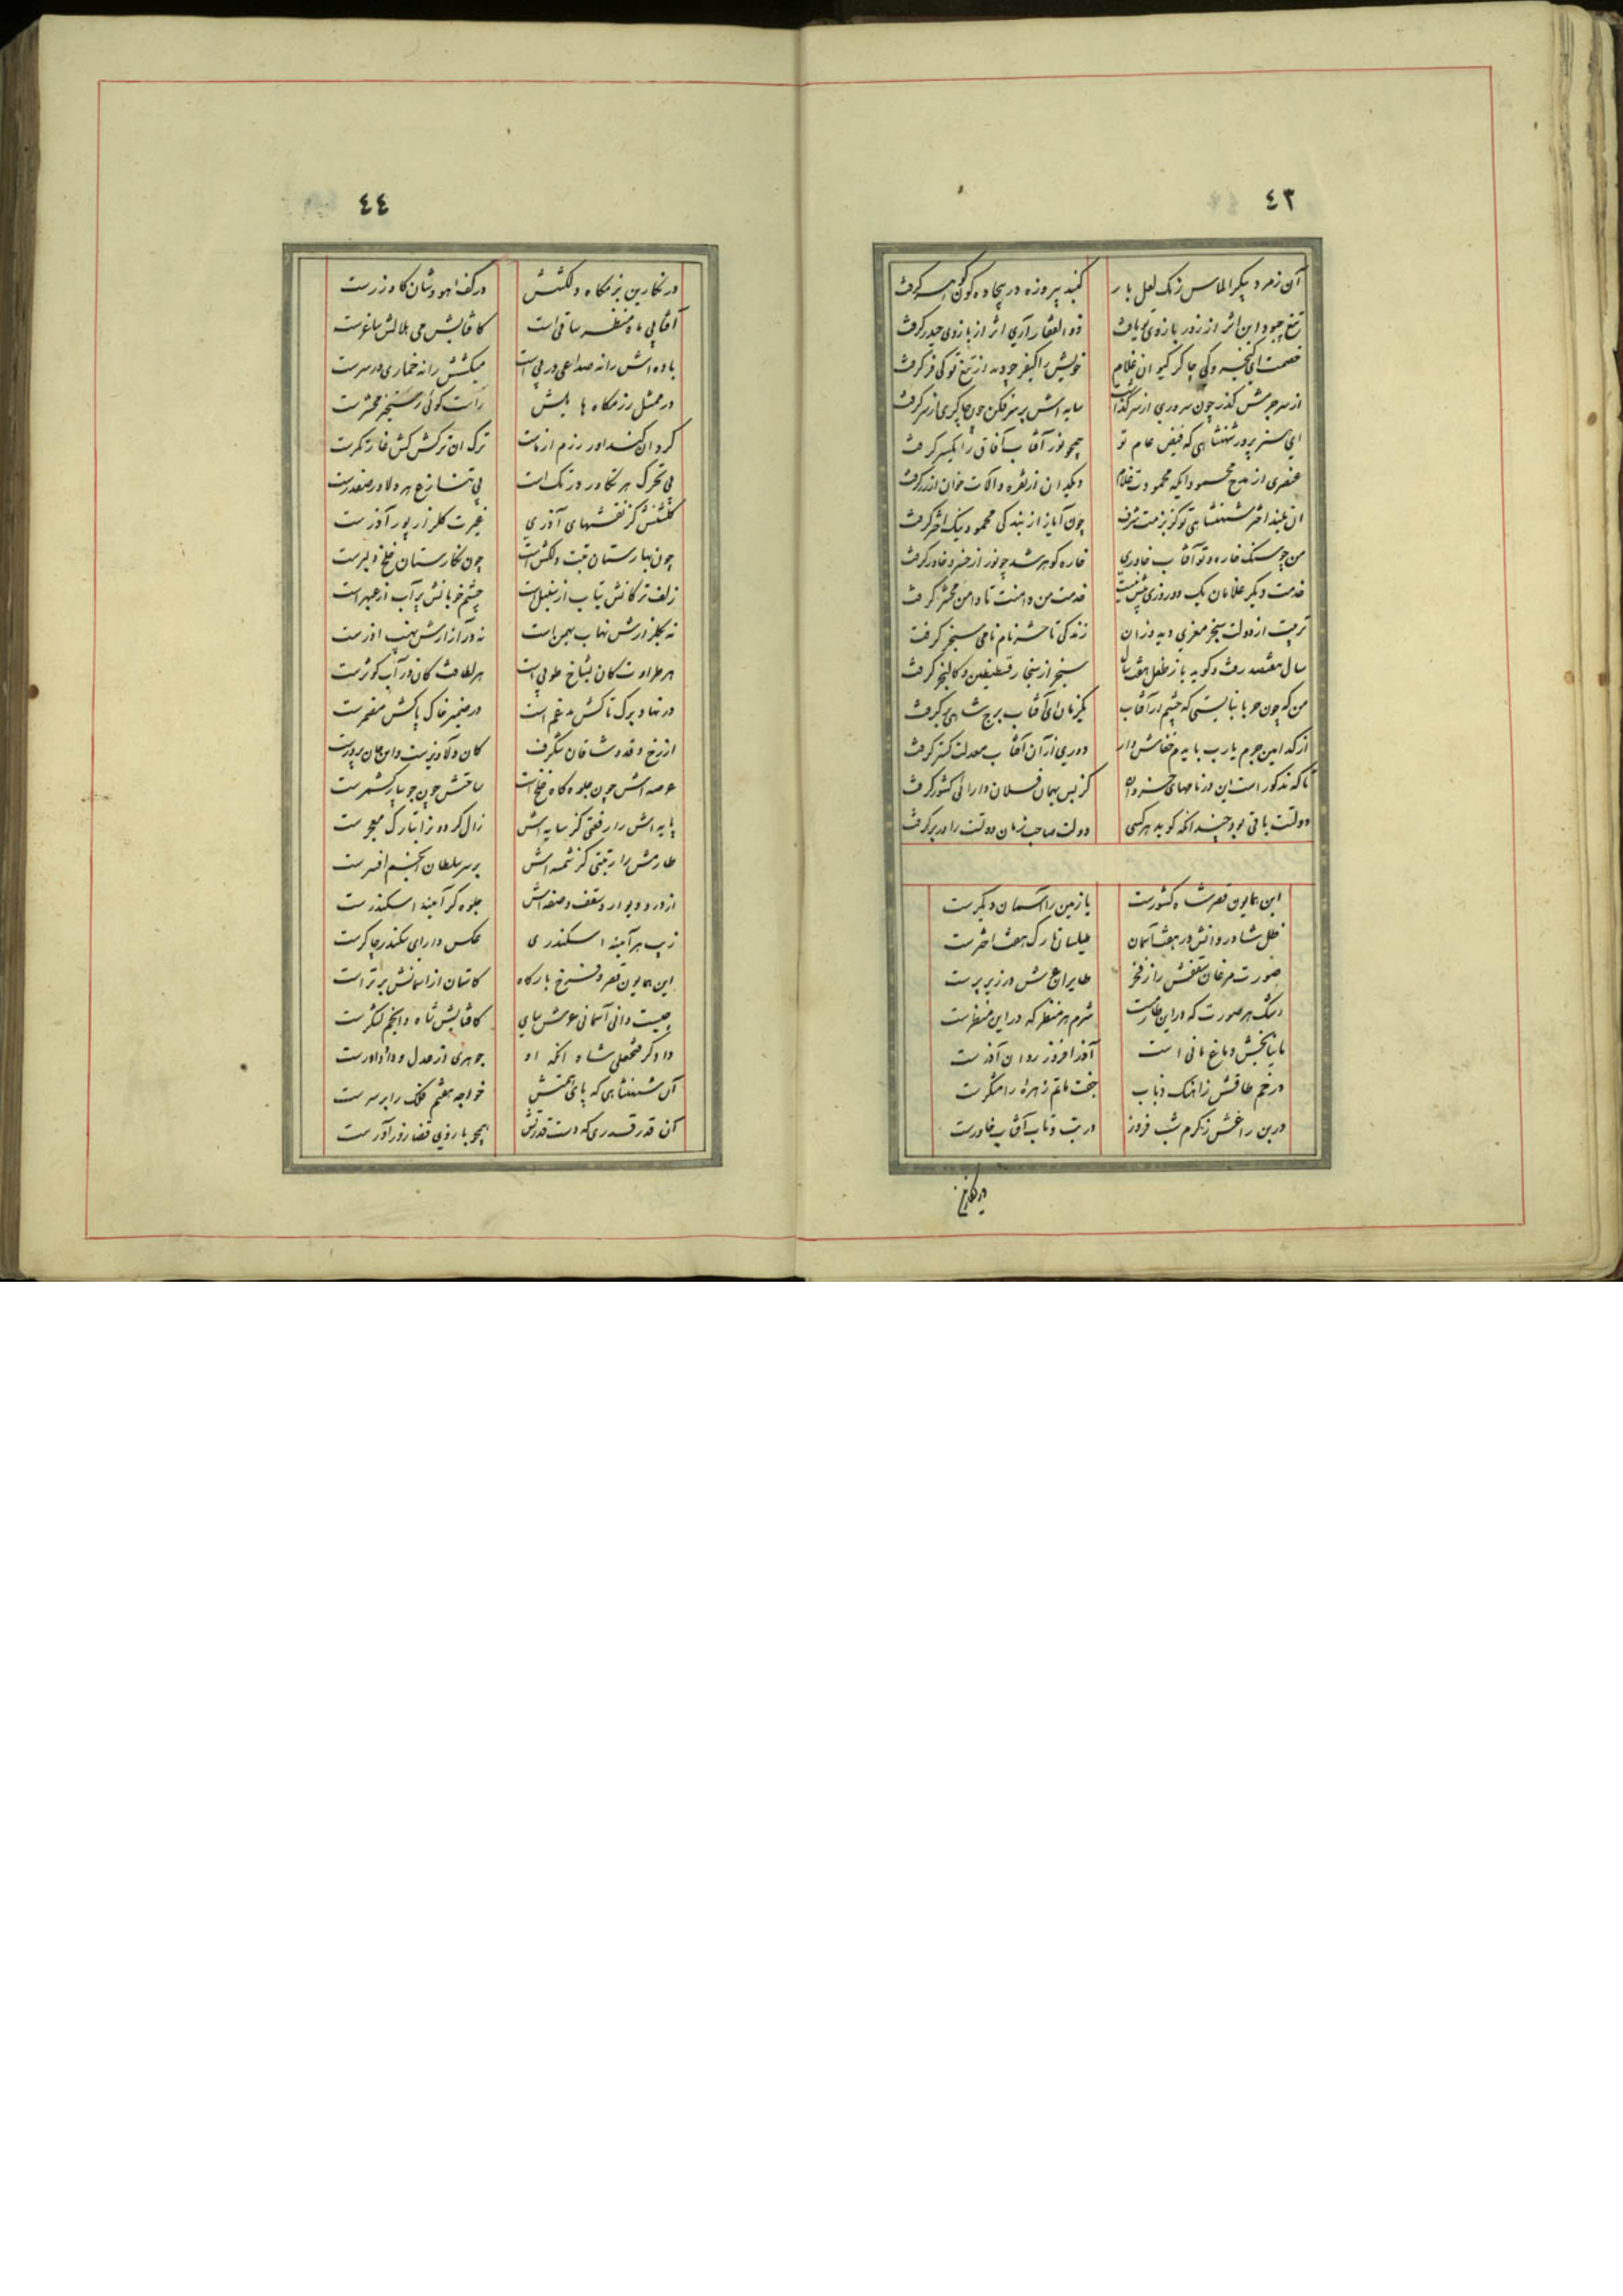 ٤٣
آن زمرد پیکر الماس رنگ لعل بار
گنبد پیروزه در بیجاده گون گوهر گرفت
تیغ چبود این اثر از زور بازوی تو یافت
ذو الفقار آری اثر از بازوی حیدر گرفت
خصمت ای کیخسروکی چاکر کیوان غلام
خویش را کیفر چو دید از تیغ تو کی فر گرفت
از سر جرمش گذر چون سروری از سر گذاشت
سایه اش بر سر فکن چون چاکری از سر گرفت
ای هنر پرور شهنشاهی که فیض عام تو
همچو نور آفتاب آفاق را یکسر گرفت
عنصری از مدح محمود آنکه محمودت غلام
دیگدان از نقره و آلات خوان از زر گرفت
آن بلند اختر شهنشاهی تو کز بزمت شرف
چون آیاز از بندگی محمود نیک اختر گرفت
من چو سنگ خاره و تو آفتاب خاوری
خاره گوهر شد چو نور از خسرو خاور گرفت
خدمت دیگر غلامان یک دو روزی بیش نیست
خدمت من دامنت تا دامن محشر گرفت
تربیت از دولت سنجر معزی دید وزان
زندگی تا حشر نام نامی سنجر گرفت
سال هفتصد رفت و گوید باز طفل هفت سال
سنجر از سنجار قسطنطین و کالنجر گرفت
من که چون حربا نبایستی که چشم از آفتاب
یکزمان ای آفتاب برج شاهی برگرفت
از کدامین جرم یا رب بایدم خفاش وار
دوری از آن آفتاب معدلت گستر گرفت
تا که مذکور است این در نامهای خسروان
کز پس بهمان فلان دارائی کشور گرفت
دولتت باقی بود چندانکه گوید هر کسی
دولت صاحب زمان دولتت را در بر گرفت
این همایون قصر شاه کشورست
یا زمین را آسمان دیگرست
ظل شادروانش در هفت آسمان
طیلسان تارک هفت اخترست
صورت مرغان سقفش را ز فخر
طایران عرش در زیر پرست
رشک هر صورت که در این طارمست
شرم هر منظر که در این منظرست
یا نیابخش دماغ مانی است
آذر افروز روان آذرست
در خم طاقش ز آهنگ ذباب
جفت ماتم زهره رامشگرست
درین راغش ز کرم شب فروز
در تب و تاب آفتاب خاورست
در نگارین
٤٤
در نگارین بزمگاه دلکشش
در کف آهو وشان گاو زرست
آفتابی ماه منظر ساقی است
کافتابش می هلالش ساغرست
باده اش را نه صداعی در پی است
میکشش را نه خماری در سرست
در ممثل رزمگاه هایلش
راست گوئی رستخیز محشرست
گرد آن کنداور رزم آزماست
ترک آن ترکش کش غارتگرست
بی تحرک هر تکاور در تک است
بی تنازع هر دلاور صفدرست
گلشنش کز نقشهای آذری
غیرت گلزار پور آذرست
چون بهارستان تبت دلکش است
چون نگارستان خلخ دلبرست
زلف ترکانش بتاب از سنبل است
چشم خوبانش پر آب از عبهر است
نه بگلزارش نهاب بهمن است
نه در آزارش نهیب آذرست
هر طراوت کان بشاخ طوبی است
هر لطافت کان در آب کوثرست
در نهاد برگ تاکش مدغم است
در ضمیر خاک پاکش مضمرست
از رخ و قد وشاقان شگرف
کان دلاویزست و این جان پرورست
عرصه اش چون جلوه گاه خلخ است
ساحتش چون جویبار کشمرست
پایه اش را رفعتی کز سایه اش
زال گردون را بتارک معجرست
طارمش را رتبتی کز شمسه اش
بر سر سلطان انجم افسرست
از در و دیوار و سقف و صفه اش
جلوه گر آئینه اسکندرست
زیب هر آئینه اسکندری
عکس دارای سکندر چاکرست
این همایون قصر و فرخ بارگاه
کاستان از آسمانش برتر است
چیست دانی آسمانی عرش سای
کافتابش شاه و انجم لشگرست
دادگر فتحعلی شاه آنکه او
جوهری از عدل و داد داورست
آن شهنشاهی که پای همتش
خواجه هفتم فلک را بر سرست
آن قدر قدری که دست قدرتش
همچو بازوی قضا زورآورست